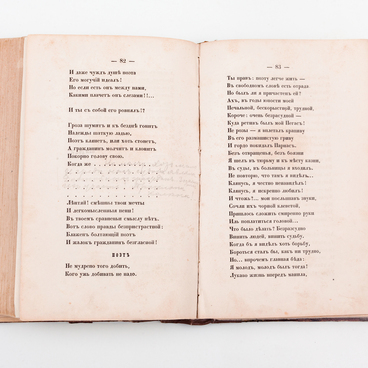 — 82 —
И даже чуждъ душѣ поэта
Его могучій идеалъ!
Но если есть онъ между нами,
Какими плачетъ онъ слезами!!...
И ты съ собой его ровнялъ!?
Гроза шумитъ и къ безднѣ гонитъ
Надежды шаткую ладью,
Поэтъ клянетъ, иль хоть стонетъ,
А гражданинъ молчитъ и клонитъ
Покорно голову свою.
Когда же ...
Лѣнтяй! смѣшны твои мечты
И легкомысленныя пени!
Въ твоемъ сравненьи смыслу нѣтъ.
Вотъ слово правды безпристрастной:
Блаженъ болтающій поэтъ
И жалокъ гражданинъ безгласной!
ПОЭТЪ
Не мудрено того добить,
Кого ужъ добивать не надо.
— 83 —
Ты правъ: поэту легче жить —
Въ свободномъ словѣ есть отрада.
Но былъ ли я причастенъ ей?
Ахъ, въ годы юности моей
Печальной, безкорыстной, трудной,
Короче: очень безразсудной —
Куда ретивъ былъ мой Пегасъ!
Не розы — я вплеталъ крапиву
Въ его размашистую гриву
И гордо покидалъ Парнасъ.
Безъ отвращенья, безъ боязни
Я шелъ въ тюрьму и къ мѣсту казни,
Въ суды, въ больницы я входилъ.
Не повторю, что тамъ я видѣлъ...
Клянусь, я честно ненавидѣлъ!
Клянусь, я искренно любилъ!
И чтожъ?... мои послышавъ звуки,
Сочли ихъ черной клеветой,
Пришлось сложить смиренно руки
Иль поплатиться головой...
Что было дѣлать? Безразсудно
Винить людей, винить судьбу.
Когда бъ я видѣлъ хоть борьбу,
Бороться сталъ бы, какъ ни трудно,
Но... впрочемъ главная бѣда:
Я молодъ, молодъ былъ тогда!
Лукаво жизнь впередъ манила,